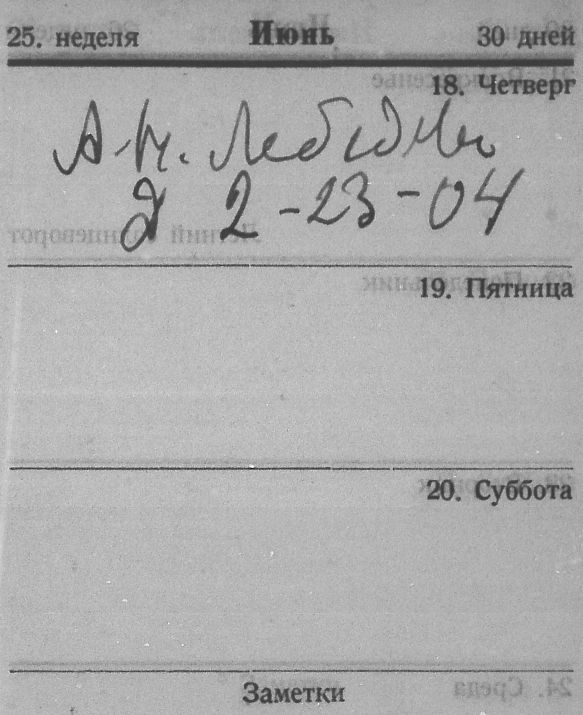 25. неделя Июнь 30 дней
18. Четверг
А.Н. Лебедев
Д 2-23-04
19. Пятница
20. Суббота
Заметки